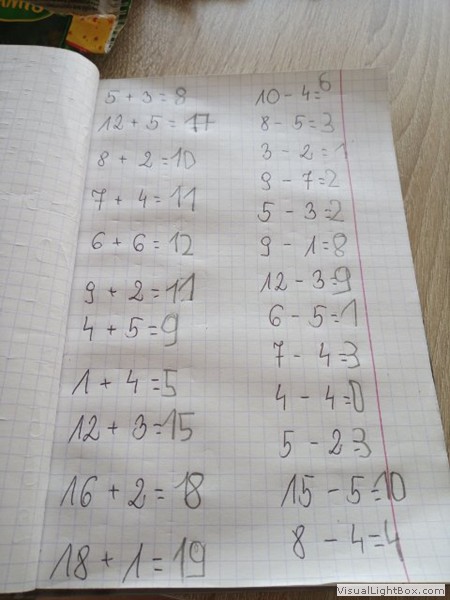 5 + 3 = 8
12 + 5 = 17
8 + 2 = 10
7 + 4 = 11
6 + 6 = 12
9 + 2 = 11
4 + 5 = 9
1 + 4 = 5
12 + 3 = 15
16 + 2 = 18
18 + 1 = 19
10 - 4 = 6
8 - 5 = 3
3 - 2 = 1
9 - 7 = 2
5 - 3 = 2
9 - 1 = 8
12 - 3 = 9
6 - 5 = 1
7 - 4 = 3
4 - 4 = 0
5 - 2 = 3
15 - 5 = 10
8 - 4 = 4
VisualLightBox.com